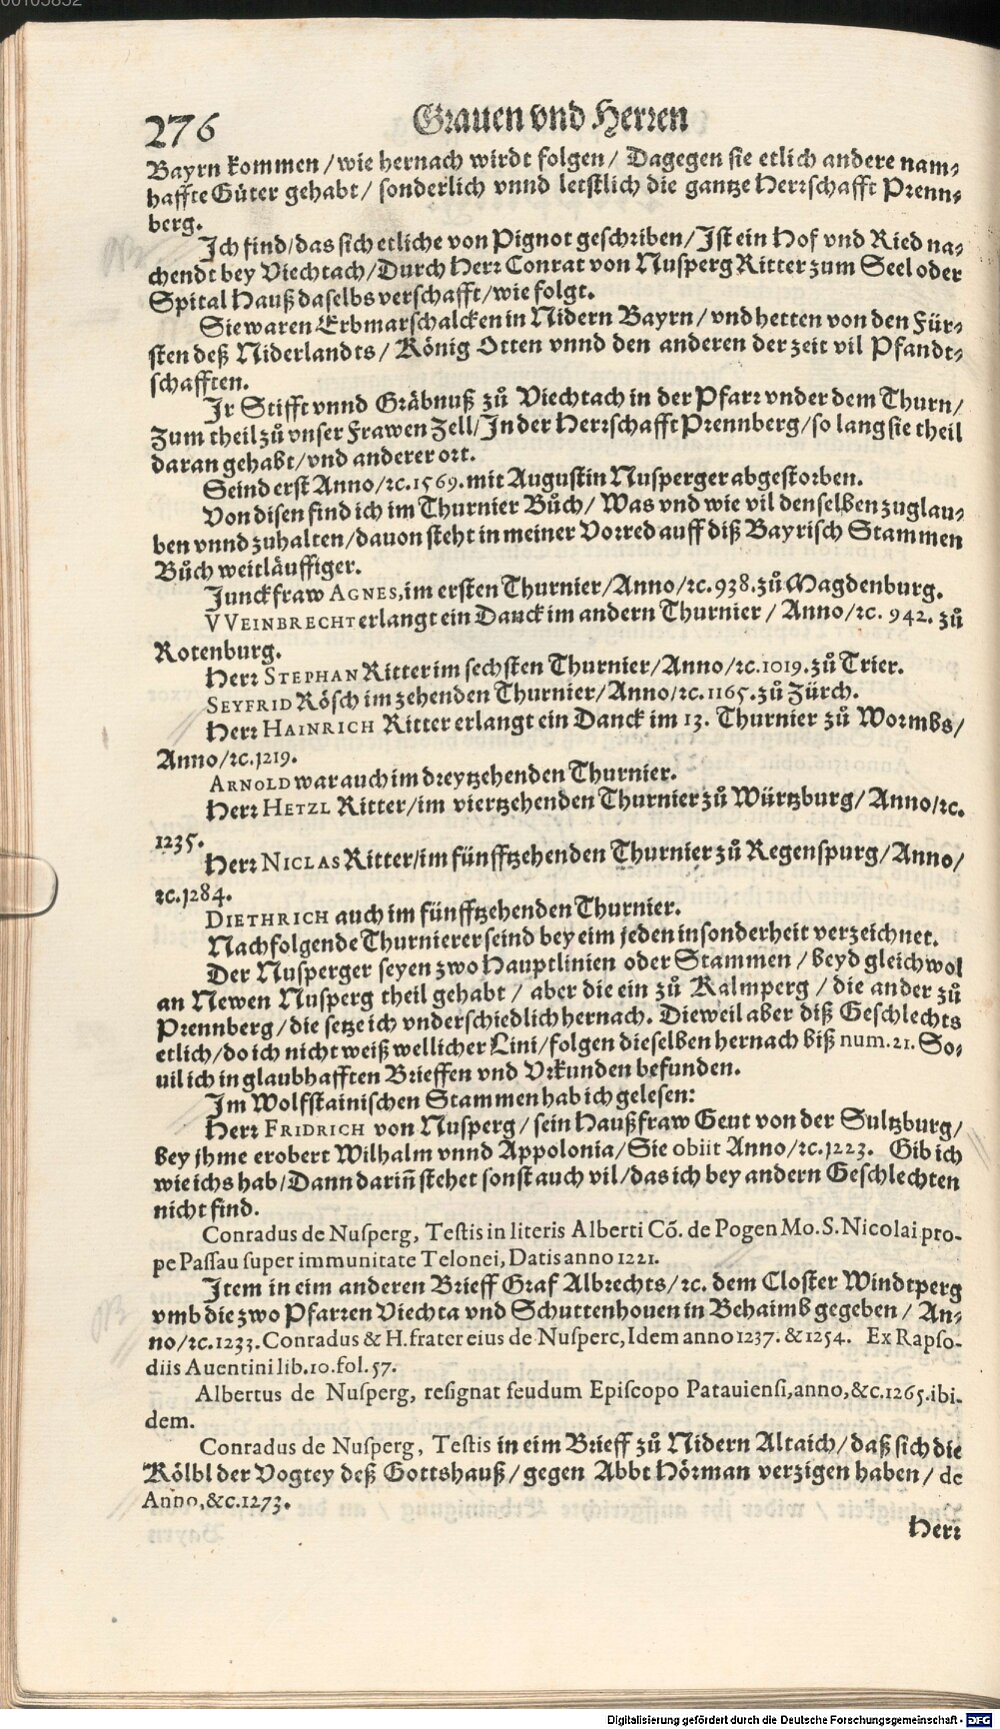 276 Grauen vnd Herren
Bayrn kommen / wie hernach wirdt folgen / Dagegen sie etlich andere nam-
haffte Güter gehabt / sonderlich vnnd letstlich die gantze Herrschafft Prenn-
berg.
Ich find / das sich etliche von Pignot geschriben / Ist ein Hof vnd Ried na-
chendt bey Viechtach / Durch Herr Conrat von Nusperg Ritter zum Seel oder
Spital Hauß daselbs verschafft / wie folgt.
Sie waren Erbmarschalcken in Nidern Bayrn / vnd hetten von den Für-
sten deß Niderlandts / König Otten vnnd den anderen der zeit vil Pfandt-
schafften.
Ir Stifft vnnd Gräbnuß zů Viechtach in der Pfarr vnder dem Thurn /
Zum theil zů vnser Frawen Zell / In der Herrschafft Prennberg / so lang sie theil
daran gehabt / vnd anderer ort.
Seind erst Anno / ꝛc. 1569. mit Augustin Nusperger abgestorben.
Von disen find ich im Thurnier Bůch / Was vnd wie vil denselben zuglau-
ben vnnd zuhalten / dauon steht in meiner Vorred auff diß Bayrisch Stammen
Bůch weitläuffiger.
Junckfraw AGNES, im ersten Thurnier / Anno / ꝛc. 938. zů Magdenburg.
VVEINBRECHT erlangt ein Danck im andern Thurnier / Anno / ꝛc. 942. zů
Rotenburg.
Herr STEPHAN Ritter im sechsten Thurnier / Anno / ꝛc. 1019. zů Trier.
SEYFRID Rösch im zehenden Thurnier / Anno / ꝛc. 1165. zů Zürch.
Herr HAINRICH Ritter erlangt ein Danck im 13. Thurnier zů Wormbs /
Anno / ꝛc. 1219.
ARNOLD war auch im dreytzehenden Thurnier.
Herr HETZL Ritter / im viertzehenden Thurnier zů Würtzburg / Anno / ꝛc.
1235.
Herr NICLAS Ritter / im fünfftzehenden Thurnier zů Regenspurg / Anno /
ꝛc. 1284.
DIETHRICH auch im fünfftzehenden Thurnier.
Nachfolgende Thurnierer seind bey eim jeden insonderheit verzeichnet.
Der Nusperger seyen zwo Hauptlinien oder Stammen / beyd gleichwol
an Newen Nusperg theil gehabt / aber die ein zů Kalmperg / die ander zů
Prennberg / die setze ich vnderschiedlich hernach. Dieweil aber diß Geschlechts
etlich / do ich nicht weiß wellicher Lini / folgen dieselben hernach biß num. 21. So-
uil ich in glaubhafften Brieffen vnd Vrkunden befunden.
Im Wolfstainischen Stammen hab ich gelesen:
Herr FRIDRICH von Nusperg / sein Haußfraw Geut von der Sultzburg /
bey jhme erobert Wilhalm vnnd Appolonia / Sie obiit Anno / ꝛc. 1223. Gib ich
wie ichs hab / Dann dariñ stehet sonst auch vil / das ich bey andern Geschlechten
nicht find.
Conradus de Nusperg, Testis in literis Alberti Cõ. de Pogen Mo. S. Nicolai pro-
pe Passau super immunitate Telonei, Datis anno 1221.
Item in eim anderen Brieff Graf Albrechts / ꝛc. dem Closter Windtperg
vmb die zwo Pfarren Viechta vnd Schuttenhouen in Behaimb gegeben / An-
no / ꝛc. 1233. Conradus & H. frater eius de Nusperc, Idem anno 1237. & 1254. Ex Rapso-
diis Auentini lib. 10. fol. 57.
Albertus de Nusperg, resignat feudum Episcopo Patauiensi, anno, &c. 1265. ibi-
dem.
Conradus de Nusperg, Testis in eim Brieff zů Nidern Altaich / daß sich die
Kölbl der Vogtey deß Gottshauß / gegen Abbt Hörman verzigen haben / de
Anno, &c. 1273.
Herr
Digitalisierung gefördert durch die Deutsche Forschungsgemeinschaft - DFG